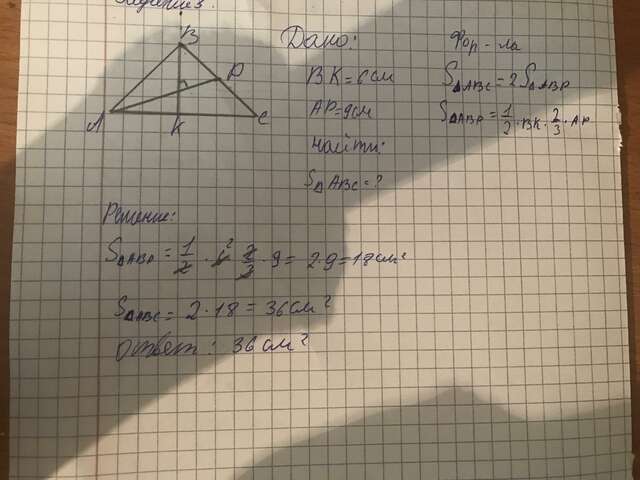 B
P
A
K
C
Дано:
BK=6см
AP=9см
Найти:
S△ABC=?
Фор-ла
S△ABC=2S△ABP
S△ABP=1/2·BK·2/3·AP
Решение:
S△ABP=1/2·6²·2/3·9=2·9=18см²
S△ABC=2·18=36см²
Ответ: 36см²